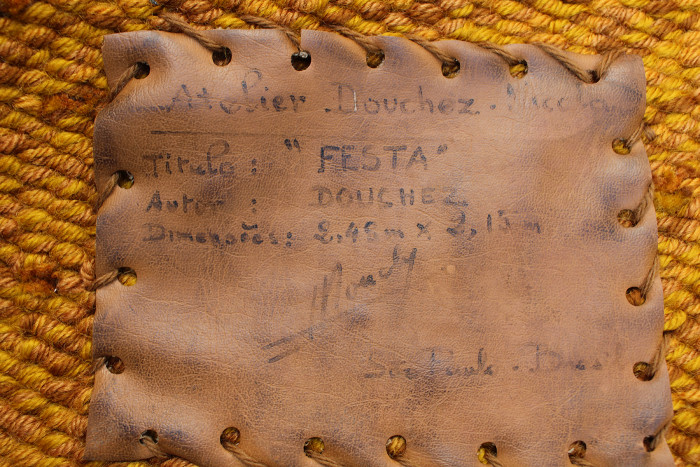 Atelier Douchez - Nicola
Titulo : "FESTA"
Autor : DOUCHEZ
Dimensões: 2,46m x 2,15m
São Paulo - Brasil